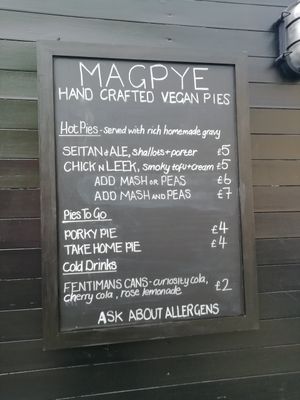 MAGPYE
HAND CRAFTED VEGAN PIES
Hot Pies - served with rich homemade gravy
SEITAN & ALE, shallots + porter £5
CHICK N LEEK, smoky tofu + cream £5
ADD MASH OR PEAS £6
ADD MASH AND PEAS £7
Pies To Go
PORKY PIE £4
TAKE HOME PIE £4
Cold Drinks
FENTIMANS CANS - curiosity cola, £2
cherry cola, rose lemonade
ASK ABOUT ALLERGENS